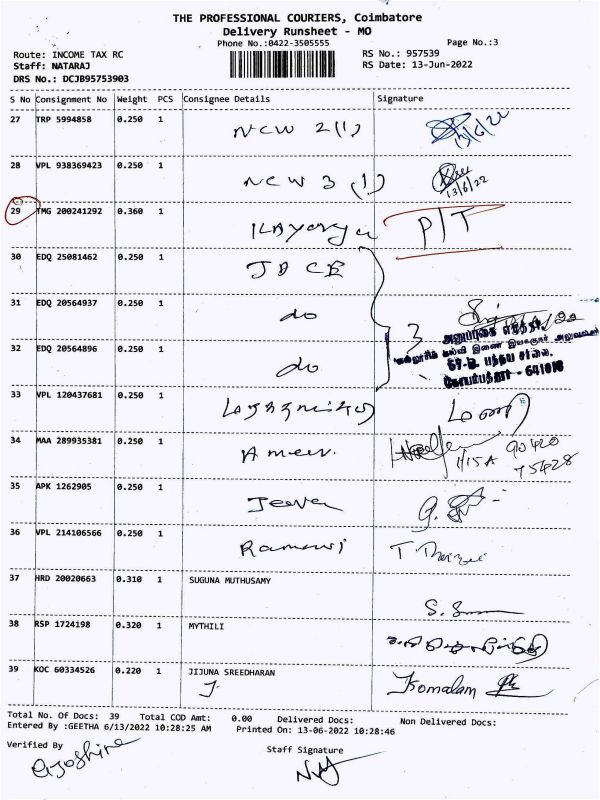 THE PROFESSIONAL COURIERS, Coimbatore
Delivery Runsheet - MO
Phone No.:0422-3505555 Page No.:3
Route: INCOME TAX RC RS No.: 957539
Staff: NATARAJ RS Date: 13-Jun-2022
DRS No.: DCJB95753903
S No Consignment No Weight PCS Consignee Details Signature
27 TRP 5994858 0.250 1
NEW 2(1) 13/6/22
28 VPL 938369423 0.250 1
NEW 3 (1) 13/6/22
29 TMG 200241292 0.360 1
P/T
30 EDQ 25081462 0.250 1
JDCE
31 EDQ 20564937 0.250 1
do
3
32 EDQ 20564896 0.250 1
do
67-B, பந்தய சாலை,
கோயம்புத்தூர் - 641018
33 VPL 120437681 0.250 1
மணி
34 MAA 289935381 0.250 1
Ameer. 1/15A 90420
75428
35 APK 1262905 0.250 1
Jeeva
36 VPL 214106566 0.250 1
37 HRD 20020663 0.310 1 SUGUNA MUTHUSAMY
38 RSP 1724198 0.320 1 MYTHILI
39 KOC 60334526 0.220 1 JIJUNA SREEDHARAN
Komalam
Total No. Of Docs: 39 Total COD Amt: 0.00 Delivered Docs: Non Delivered Docs:
Entered By :GEETHA 6/13/2022 10:28:25 AM Printed On: 13-06-2022 10:28:46
Verified By Staff Signature